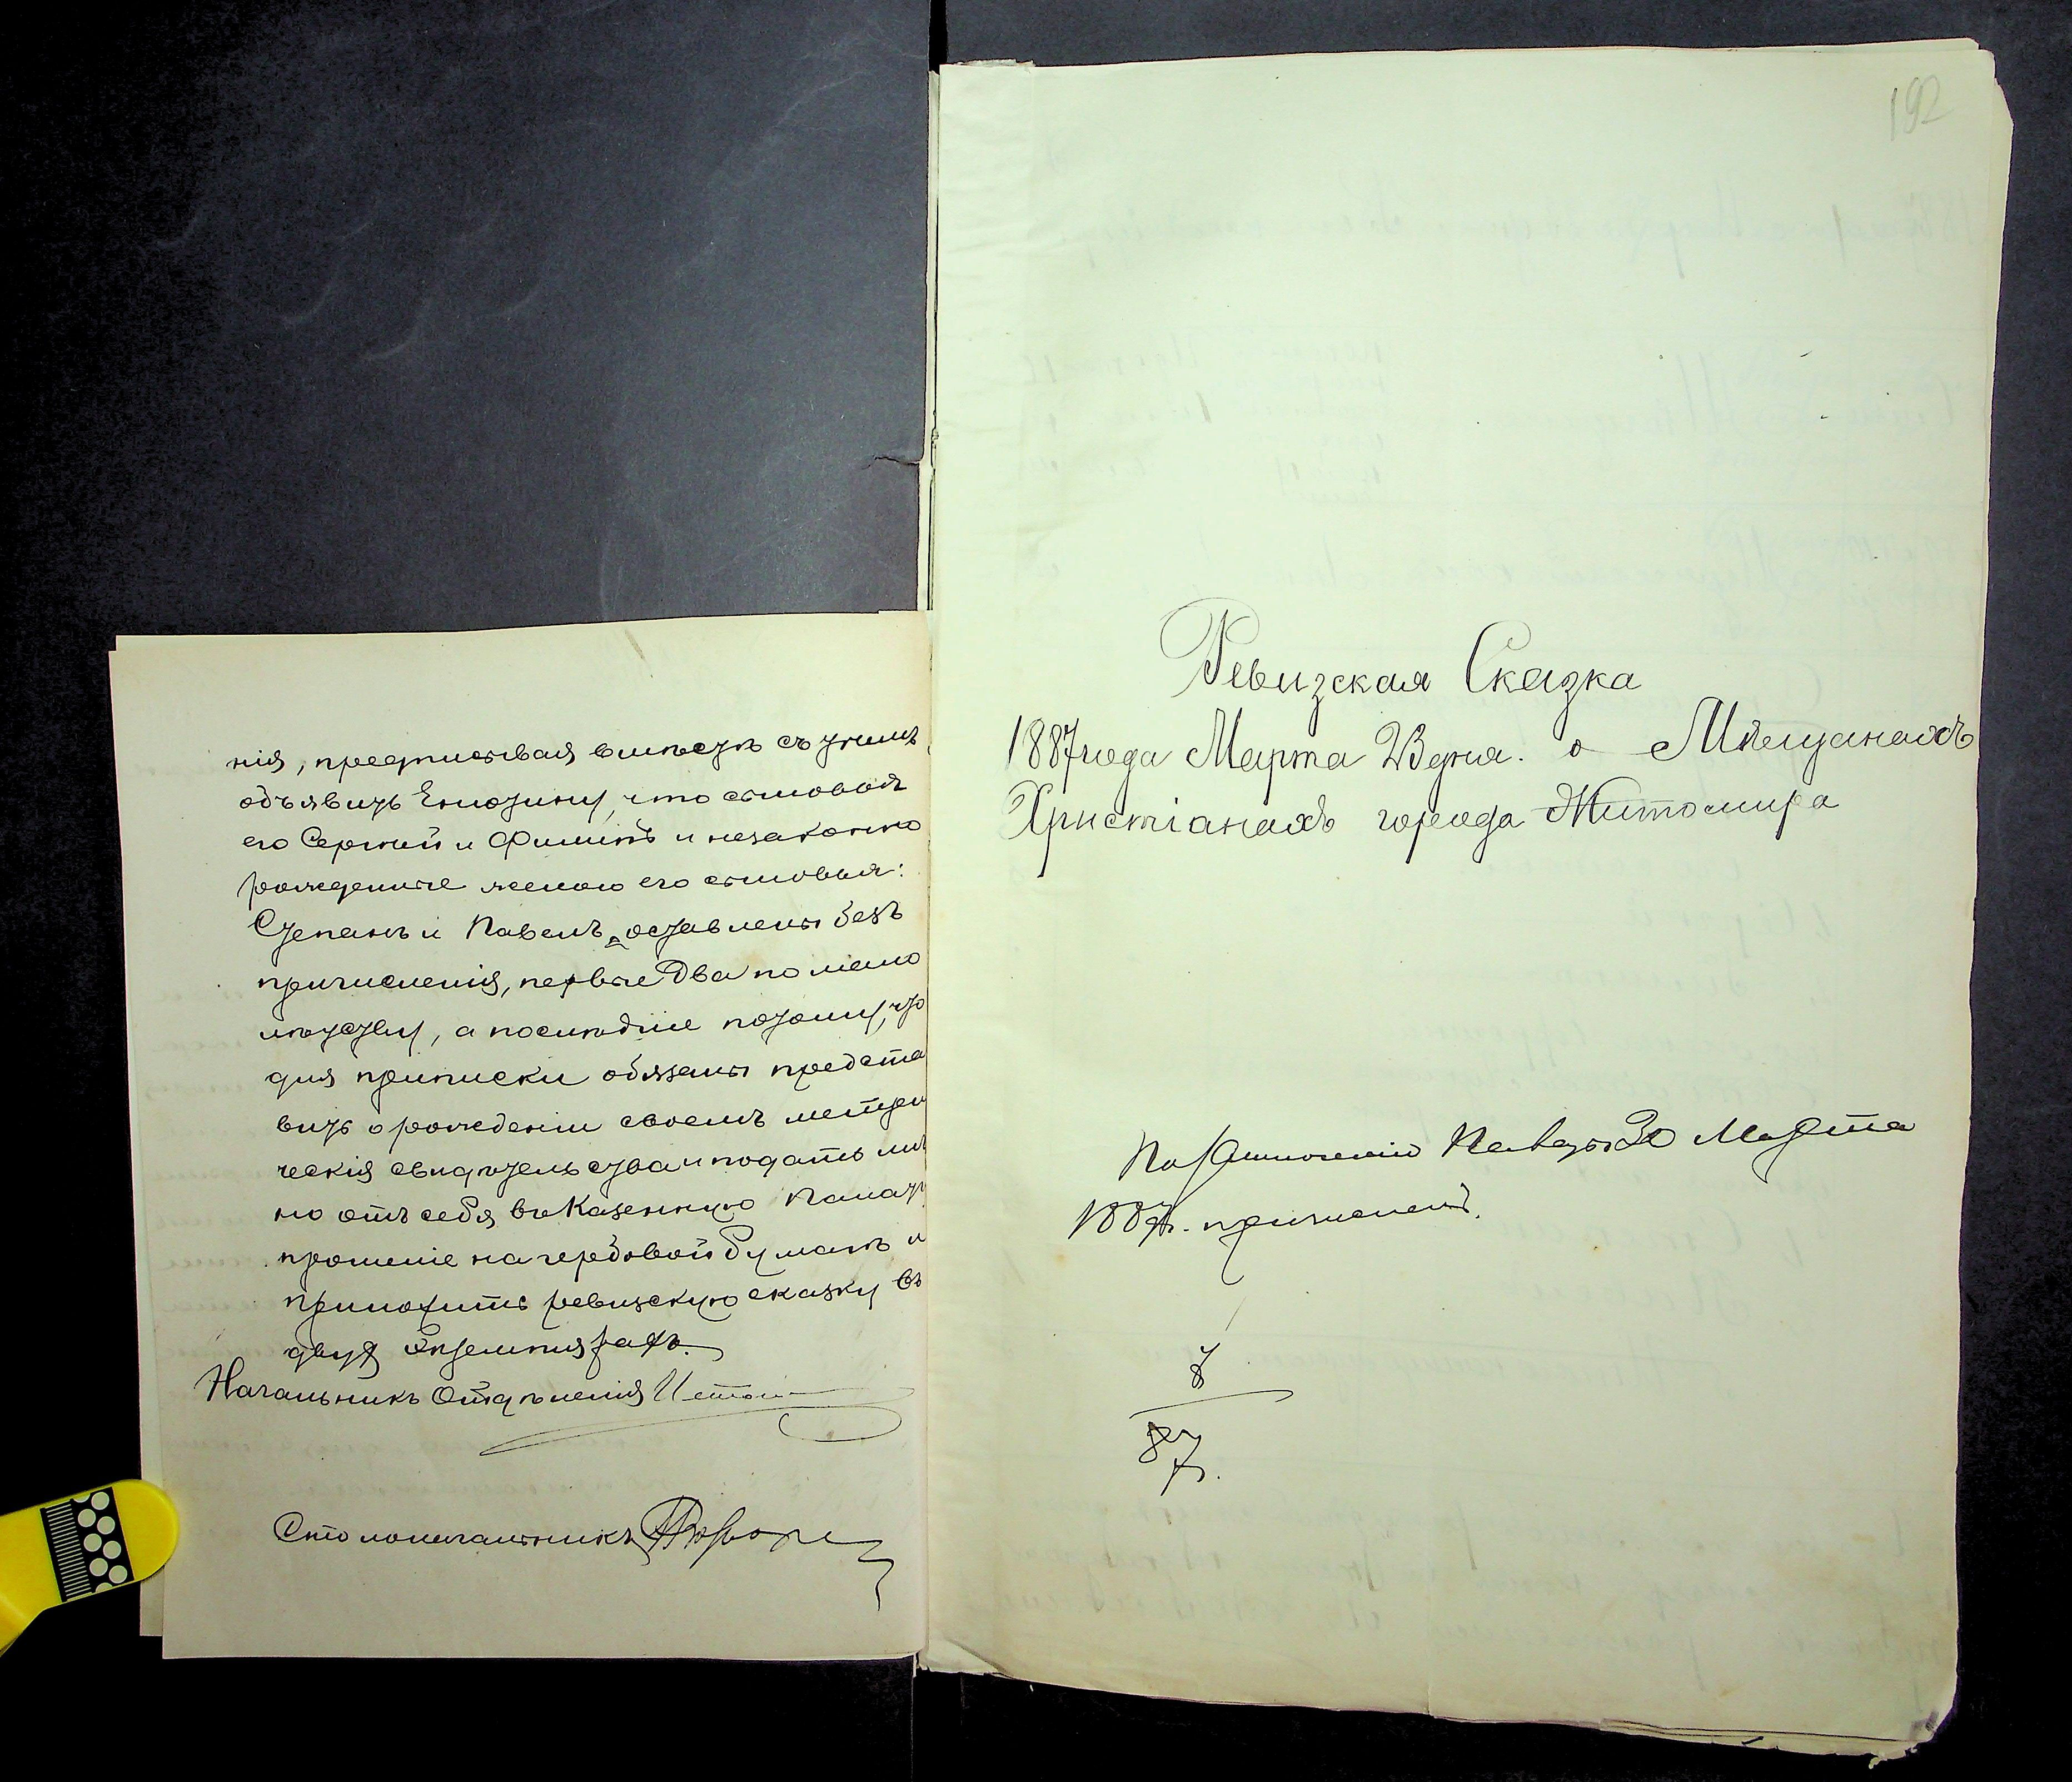 нія, предписывая вмѣстѣ съ тѣмъ
объявить Енютину, что сыновья
его Сергѣй и Филипъ и незаконно
рожденные женою его сыновья:
Степанъ и Павелъ, оставлены безъ
причисленія, первые два по мало
лѣтству, а послѣдніе потому, что
для приписки обязаны предста
вить о рожденіи своемъ метри
ческія свидѣтельства и подать лич
но отъ себя въ Казенную Палату
прошеніе на гербовой бумагѣ и
приложить ревизскую сказку въ
двухъ экземплярахъ.
Начальникъ Отдѣленія
Столоначальникъ
192
Ревизская Сказка
1887 года Марта 23 дня. о Мѣщанахъ
Христіанахъ города Житомира
По Палаты 30 Марта
1887 г. причисленъ.
7
87